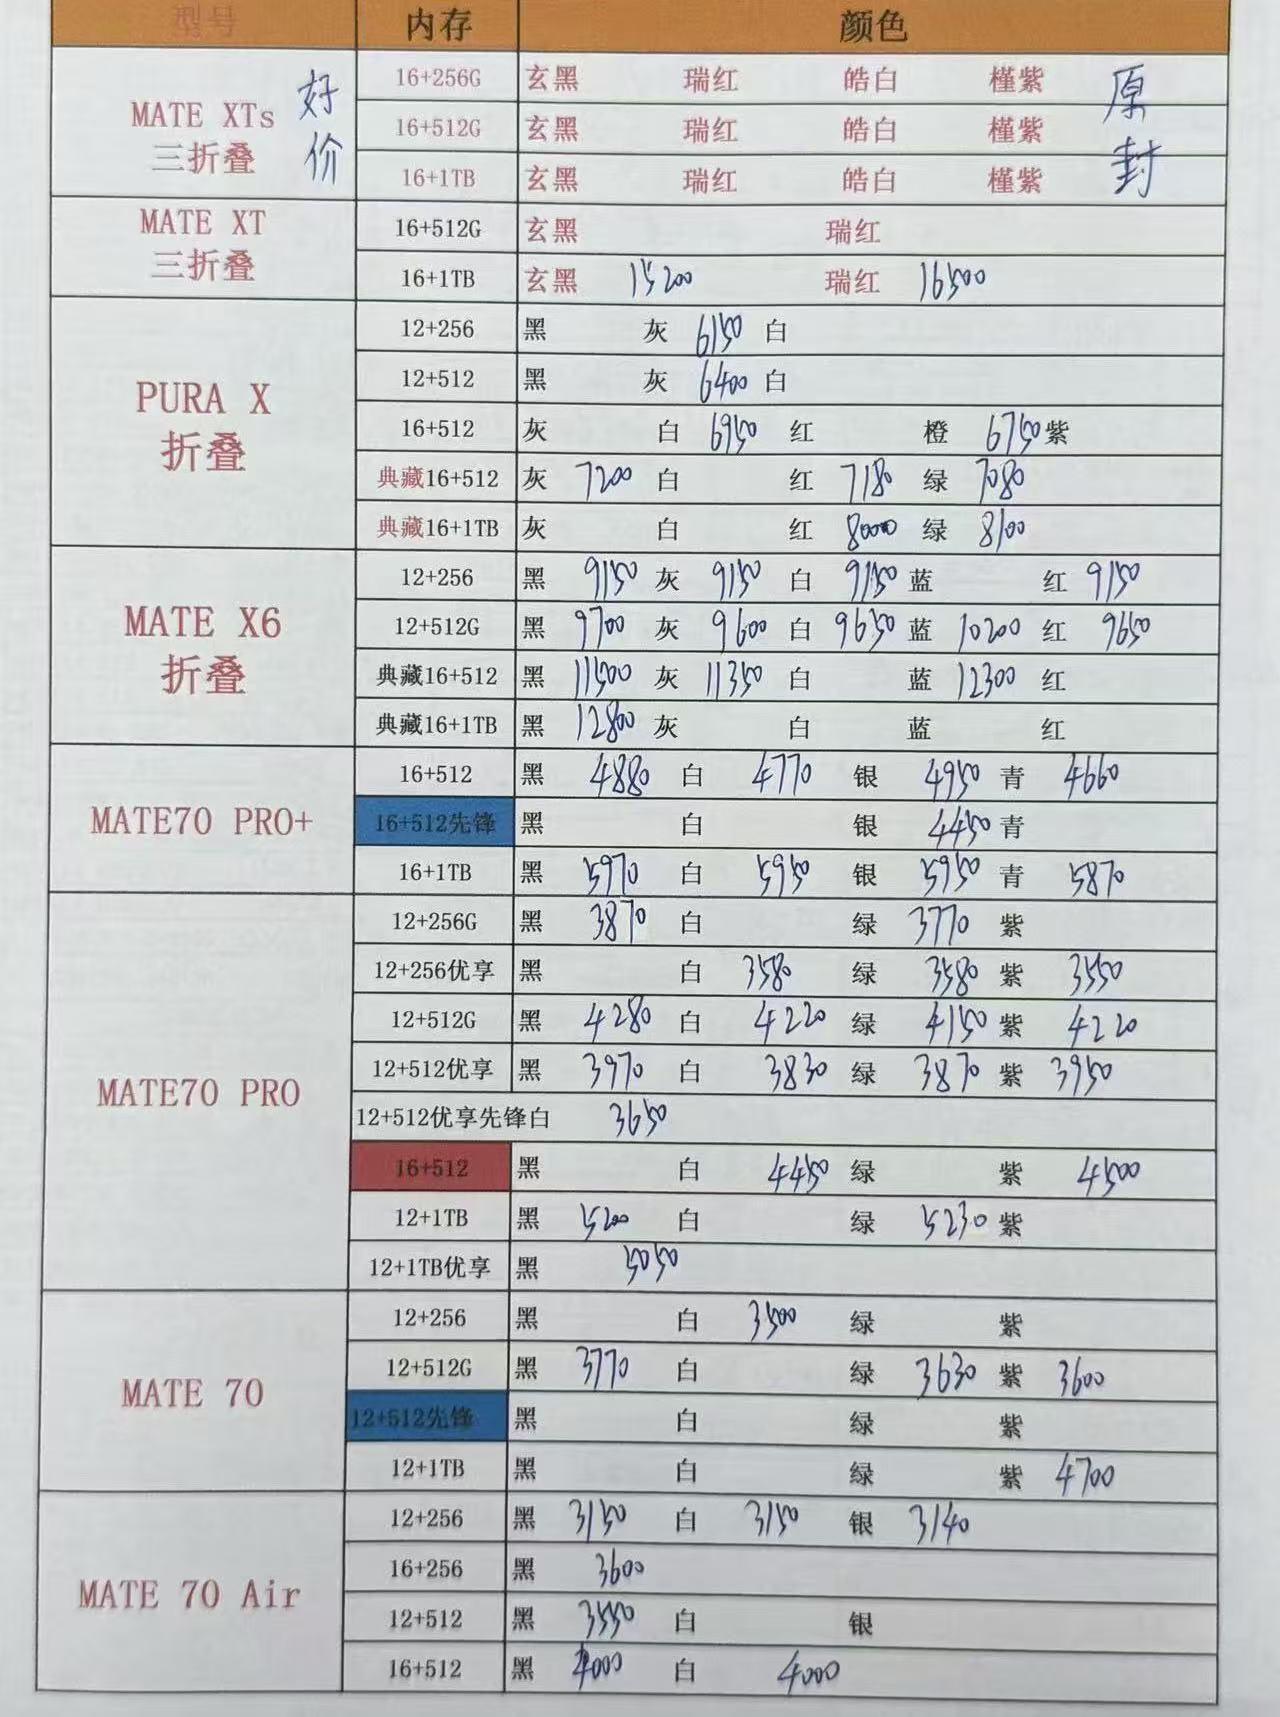 型号 内存 颜色
MATE XTs 三折叠 好价 原封
16+256G 玄黑 瑞红 皓白 槿紫
16+512G 玄黑 瑞红 皓白 槿紫
16+1TB 玄黑 瑞红 皓白 槿紫
MATE XT 三折叠
16+512G 玄黑 瑞红
16+1TB 玄黑 15200 瑞红 16500
PURA X 折叠
12+256 黑 灰 6150 白
12+512 黑 灰 6400 白
16+512 灰 白 6950 红 橙 6750 紫
典藏16+512 灰 7200 白 红 7180 绿 7080
典藏16+1TB 灰 白 红 8000 绿 8100
MATE X6 折叠
12+256 黑 9150 灰 9150 白 9150 蓝 红 9150
12+512G 黑 9700 灰 9600 白 9650 蓝 10200 红 9650
典藏16+512 黑 11500 灰 11350 白 蓝 12300 红
典藏16+1TB 黑 12800 灰 白 蓝 红
MATE70 PRO+
16+512 黑 4880 白 4770 银 4950 青 4660
16+512先锋 黑 白 银 4450 青
16+1TB 黑 5970 白 5950 银 5950 青 5870
MATE70 PRO
12+256G 黑 3870 白 绿 3770 紫
12+256优享 黑 白 3580 绿 3580 紫 3550
12+512G 黑 4280 白 4220 绿 4150 紫 4220
12+512优享 黑 3970 白 3830 绿 3870 紫 3950
12+512优享先锋白 3650
16+512 黑 白 4450 绿 紫 4500
12+1TB 黑 5200 白 绿 5230 紫
12+1TB优享 黑 5050
MATE 70
12+256 黑 白 3500 绿 紫
12+512G 黑 3770 白 绿 3630 紫 3600
12+512先锋 黑 白 绿 紫
12+1TB 黑 白 绿 紫 4700
MATE 70 Air
12+256 黑 3150 白 3150 银 3140
16+256 黑 3600
12+512 黑 3550 白 银
16+512 黑 4000 白 4000